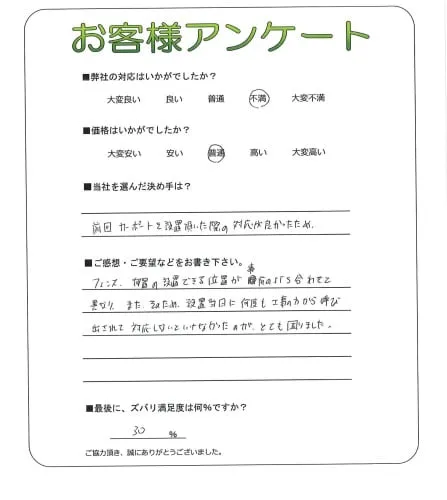 お客様アンケート
■弊社の対応はいかがでしたか？
大変良い 良い 普通 不満 大変不満
■価格はいかがでしたか？
大変安い 安い 普通 高い 大変高い
■当社を選んだ決め手は？
前回カーポートを設置頂いた際の対応が良かったため。
■ご感想・ご要望などをお書き下さい。
フェンス、 の設置できる位置が事前の打ち合わせと
異なり、また、そのため、設置当日に何度も工事の方から呼び
出されて対応しないといけなかったのが、とても困りました。
■最後に、ズバリ満足度は何％ですか？
30 ％
ご協力頂き、誠にありがとうございました。